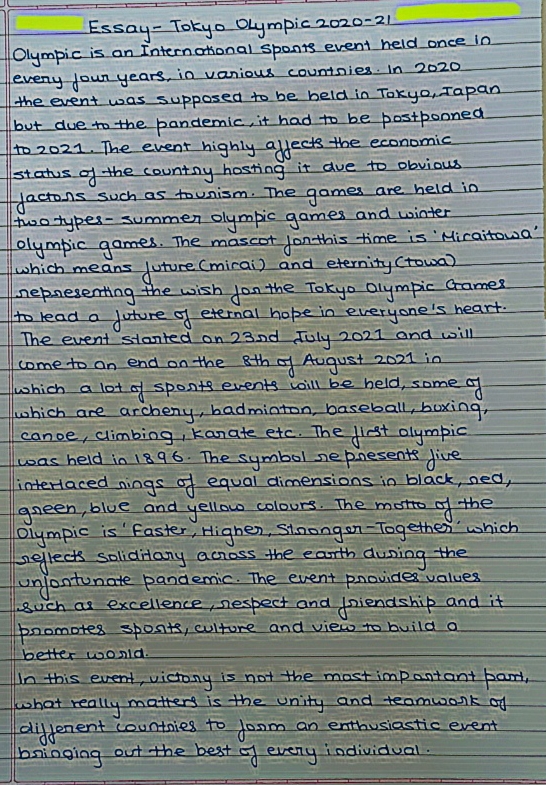 Essay - Tokyo Olympic 2020-21
Olympic is an International sports event held once in
every four years, in various countries. In 2020
the event was supposed to be held in Tokyo, Japan
but due to the pandemic, it had to be postponned
to 2021. The event highly affects the economic
status of the country hosting it due to obvious
factors such as tourism. The games are held in
two types - summer olympic games and winter
olympic games. The mascot for this time is 'Miraitowa'
which means future (mirai) and eternity (towa)
representing the wish for the Tokyo Olympic Games
to lead a future of eternal hope in everyone's heart.
The event started on 23rd July 2021 and will
come to an end on the 8th of August 2021 in
which a lot of sports events will be held, some of
which are archery, badminton, baseball, boxing,
canoe, climbing, karate etc. The first olympic
was held in 1896. The symbol represents five
interlaced rings of equal dimensions in black, red,
green, blue and yellow colours. The motto of the
Olympic is 'Faster, Higher, Stronger - Together' which
reflects soliditary across the earth during the
unfortunate pandemic. The event provides values
such as excellence, respect and friendship and it
promotes sports, culture and view to build a
better world.
In this event, victory is not the most important part,
what really matters is the unity and teamwork of
different countries to form an enthusiastic event
bringing out the best of every individual.